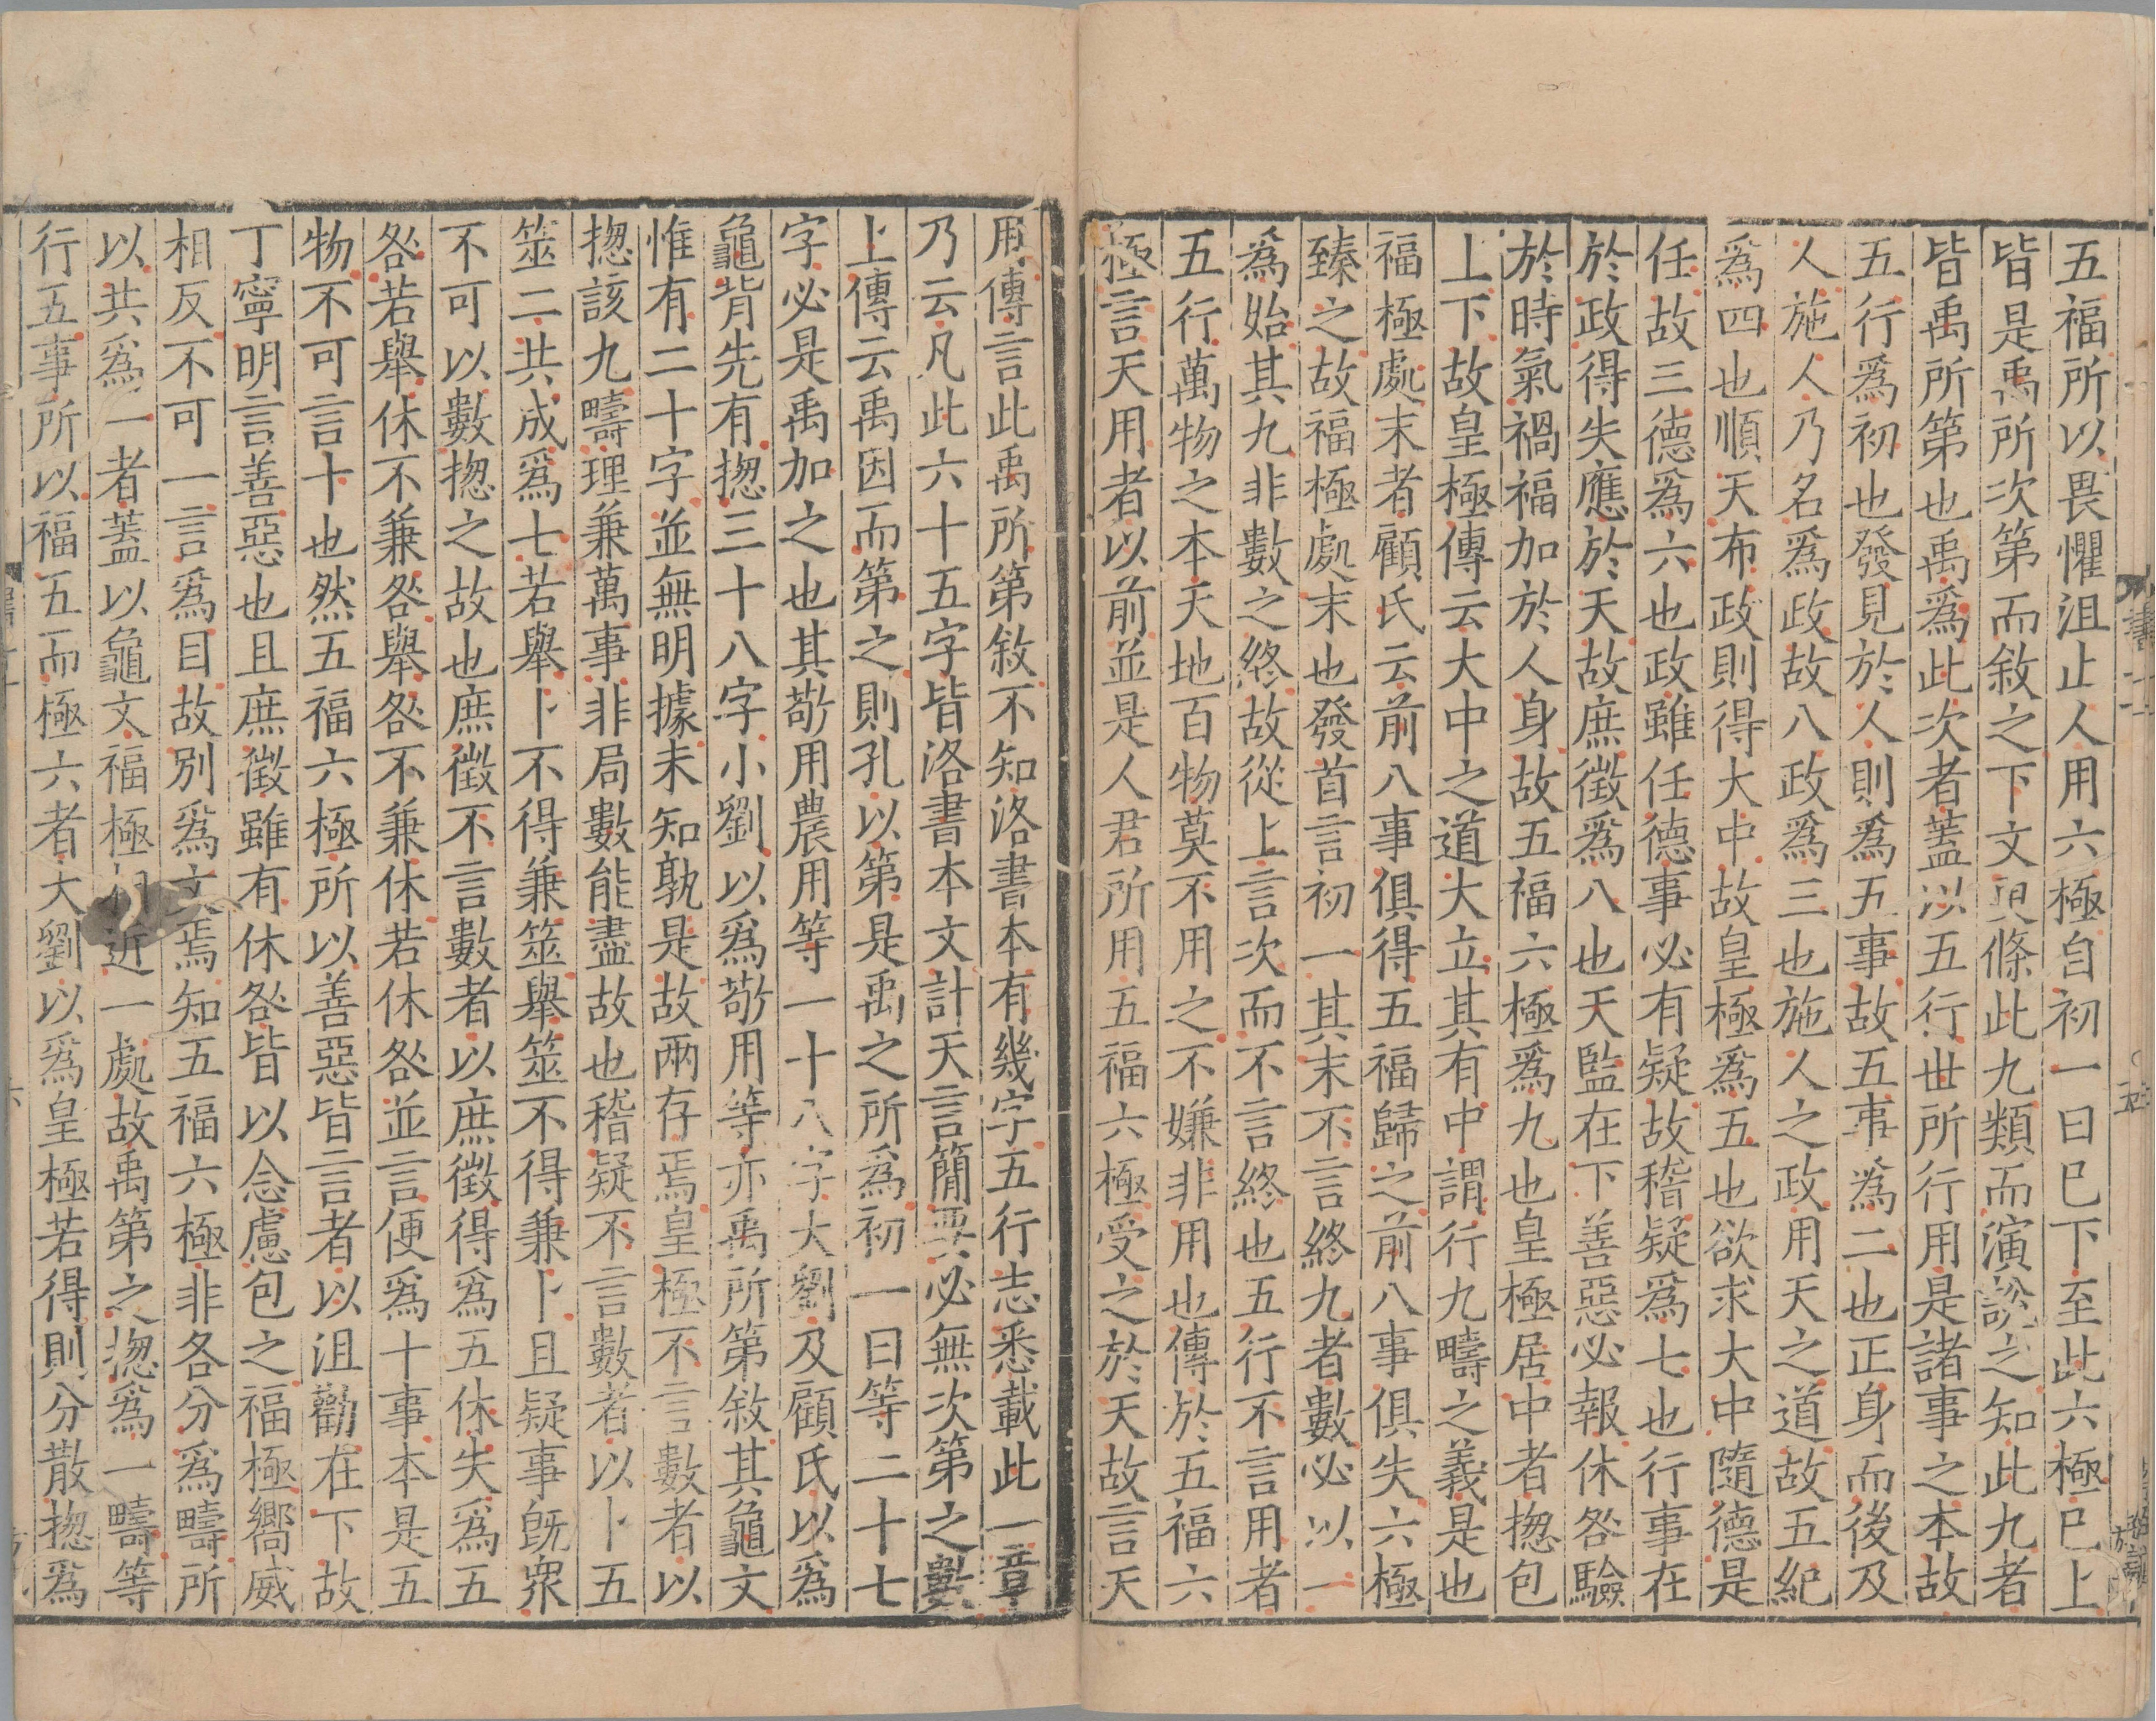 五福所以畏懼沮止人用六極自初一曰已下至此六極已上
皆是禹所次第而敘之下文更條此九類而演說之知此九者
皆禹所第也禹為此次者蓋以五行世所行用是諸事之本故
五行為初也發見於人則為五事故五事為二也正身而後及
人施人乃名為政故八政為三也施人之政用天之道故五紀
為四也順天布政則得大中故皇極為五也欲求大中隨德是
任故三德為六也政雖任德事必有疑故稽疑為七也行事在
於政得失應於天故庶徵為八也天監在下善惡必報休咎驗
於時氣禍福加於人身故五福六極為九也皇極居中者揔包
上下故皇極傳云大中之道大立其有中謂行九疇之義是也
福極處末者顧氏云前八事俱得五福歸之前八事俱失六極
臻之故福極處末也發首言初一其末不言終九者數必以一
為始其九非數之終故從上言次而不言終也五行不言用者
五行萬物之本天地百物莫不用之不嫌非用也傳於五福六
極言天用者以前並是人君所用五福六極受之於天故言天
用傳言此禹所第敘不知洛書本有幾字五行志悉載此一章
乃云凡此六十五字皆洛書本文計天言簡要必無次第之數
上傳云禹因而第之則孔以第是禹之所為初一曰等二十七
字必是禹加之也其敬用農用等一十八字大劉及顧氏以為
龜背先有揔三十八字小劉以為敬用等亦禹所第敘其龜文
惟有二十字並無明據未知孰是故兩存焉皇極不言數者以
揔該九疇理兼萬事非局數能盡故也稽疑不言數者以卜五
筮二共成為七若舉卜不得兼筮舉筮不得兼卜且疑事既眾
不可以數揔之故也庶徵不言數者以庶徵得為五休失為五
咎若舉休不兼咎舉咎不兼休若休咎並言便為十事本是五
物不可言十也然五福六極所以善惡皆言者以沮勸在下故
丁寧明言善惡也且庶徵雖有休咎皆以念慮包之福極嚮威
相反不可一言為目故別為文焉知五福六極非各分為疇所
以共為一者蓋以龜文福極相近一處故禹第之揔為一疇等
行五事所以福五而極六者大劉以為皇極若得則分散揔為